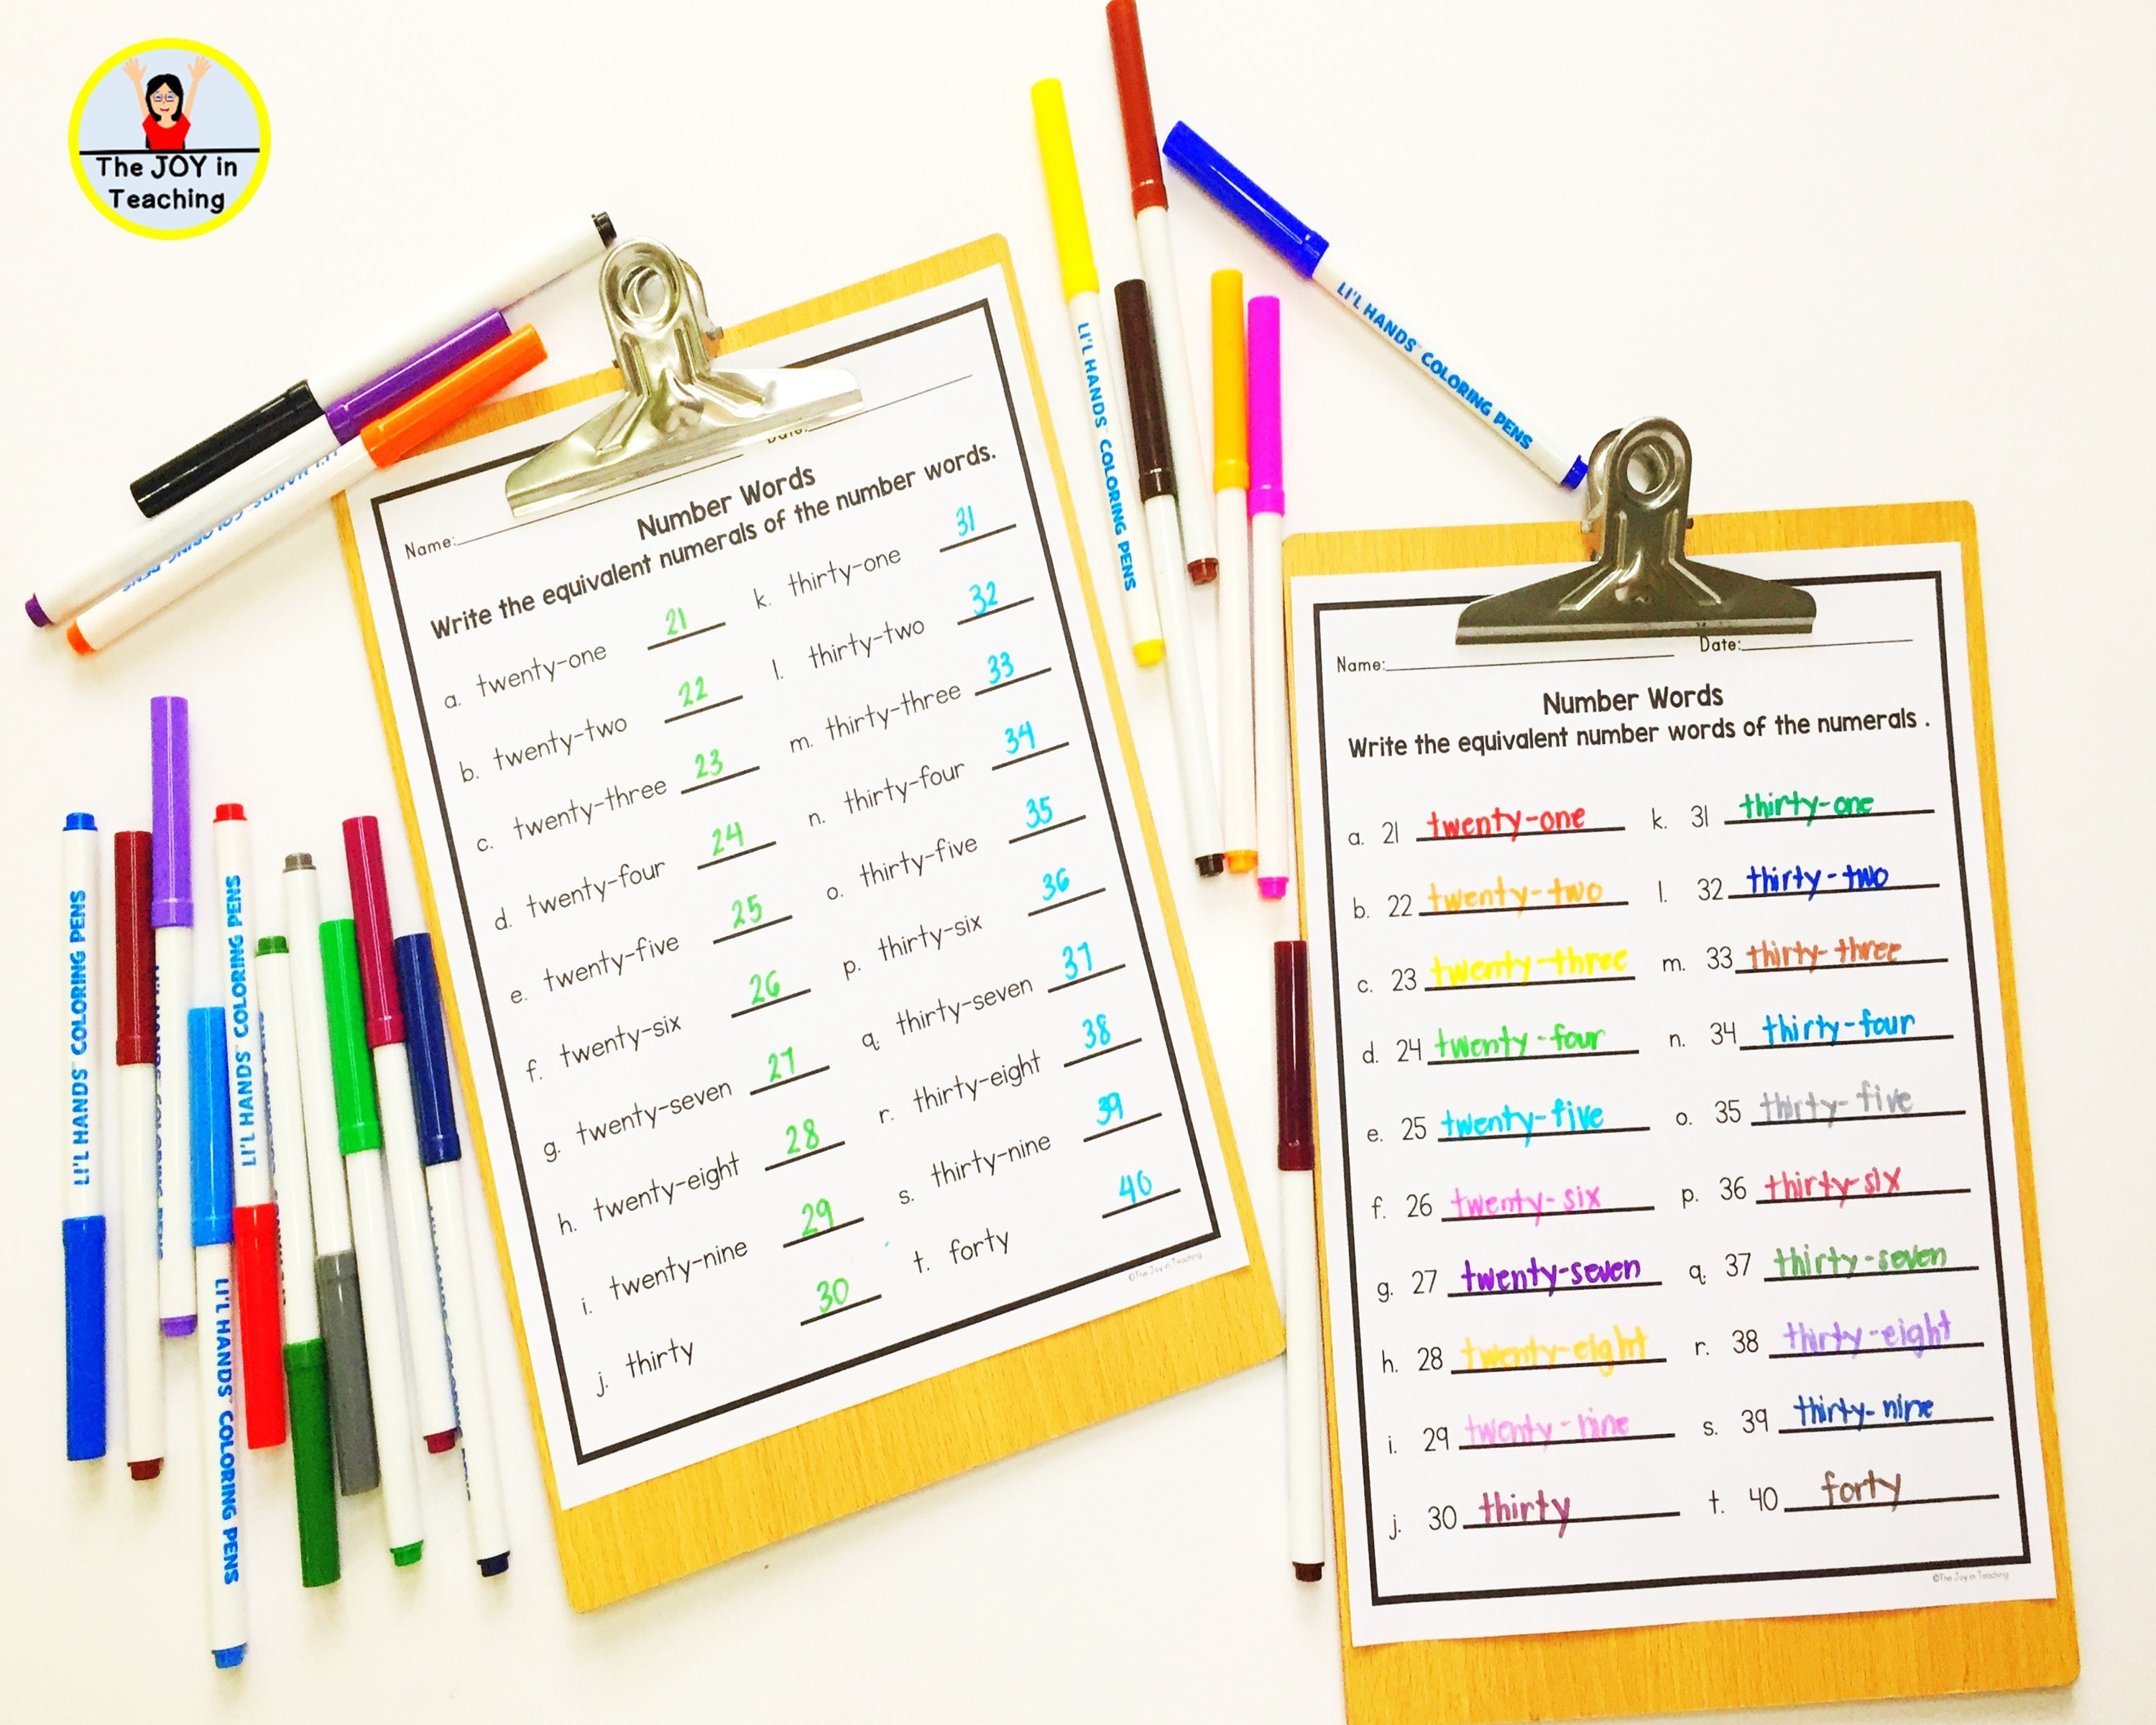 The JOY in
Teaching
Name:
Date:
Number Words
Write the equivalent numerals of the number words.
a. twenty-one 21 k. thirty-one 31
b. twenty-two 22 l. thirty-two 32
c. twenty-three 23 m. thirty-three 33
d. twenty-four 24 n. thirty-four 34
e. twenty-five 25 o. thirty-five 35
f. twenty-six 26 p. thirty-six 36
g. twenty-seven 27 q. thirty-seven 37
h. twenty-eight 28 r. thirty-eight 38
i. twenty-nine 29 s. thirty-nine 39
j. thirty 30 t. forty 40
©The Joy in Teaching
Name: Date:
Number Words
Write the equivalent number words of the numerals .
a. 21 twenty-one k. 31 thirty-one
b. 22 twenty-two l. 32 thirty-two
c. 23 twenty-three m. 33 thirty-three
d. 24 twenty-four n. 34 thirty-four
e. 25 twenty-five o. 35 thirty-five
f. 26 twenty-six p. 36 thirty-six
g. 27 twenty-seven q. 37 thirty-seven
h. 28 twenty-eight r. 38 thirty-eight
i. 29 twenty-nine s. 39 thirty-nine
j. 30 thirty t. 40 forty
©The Joy in Teaching
LI'L HANDS™ COLORING PENS
LI'L HANDS™ COLORING PENS
LI'L HANDS™ COLORING PENS
LI'L HANDS™ COLORING PENS
LI'L HANDS™ COLORING PENS